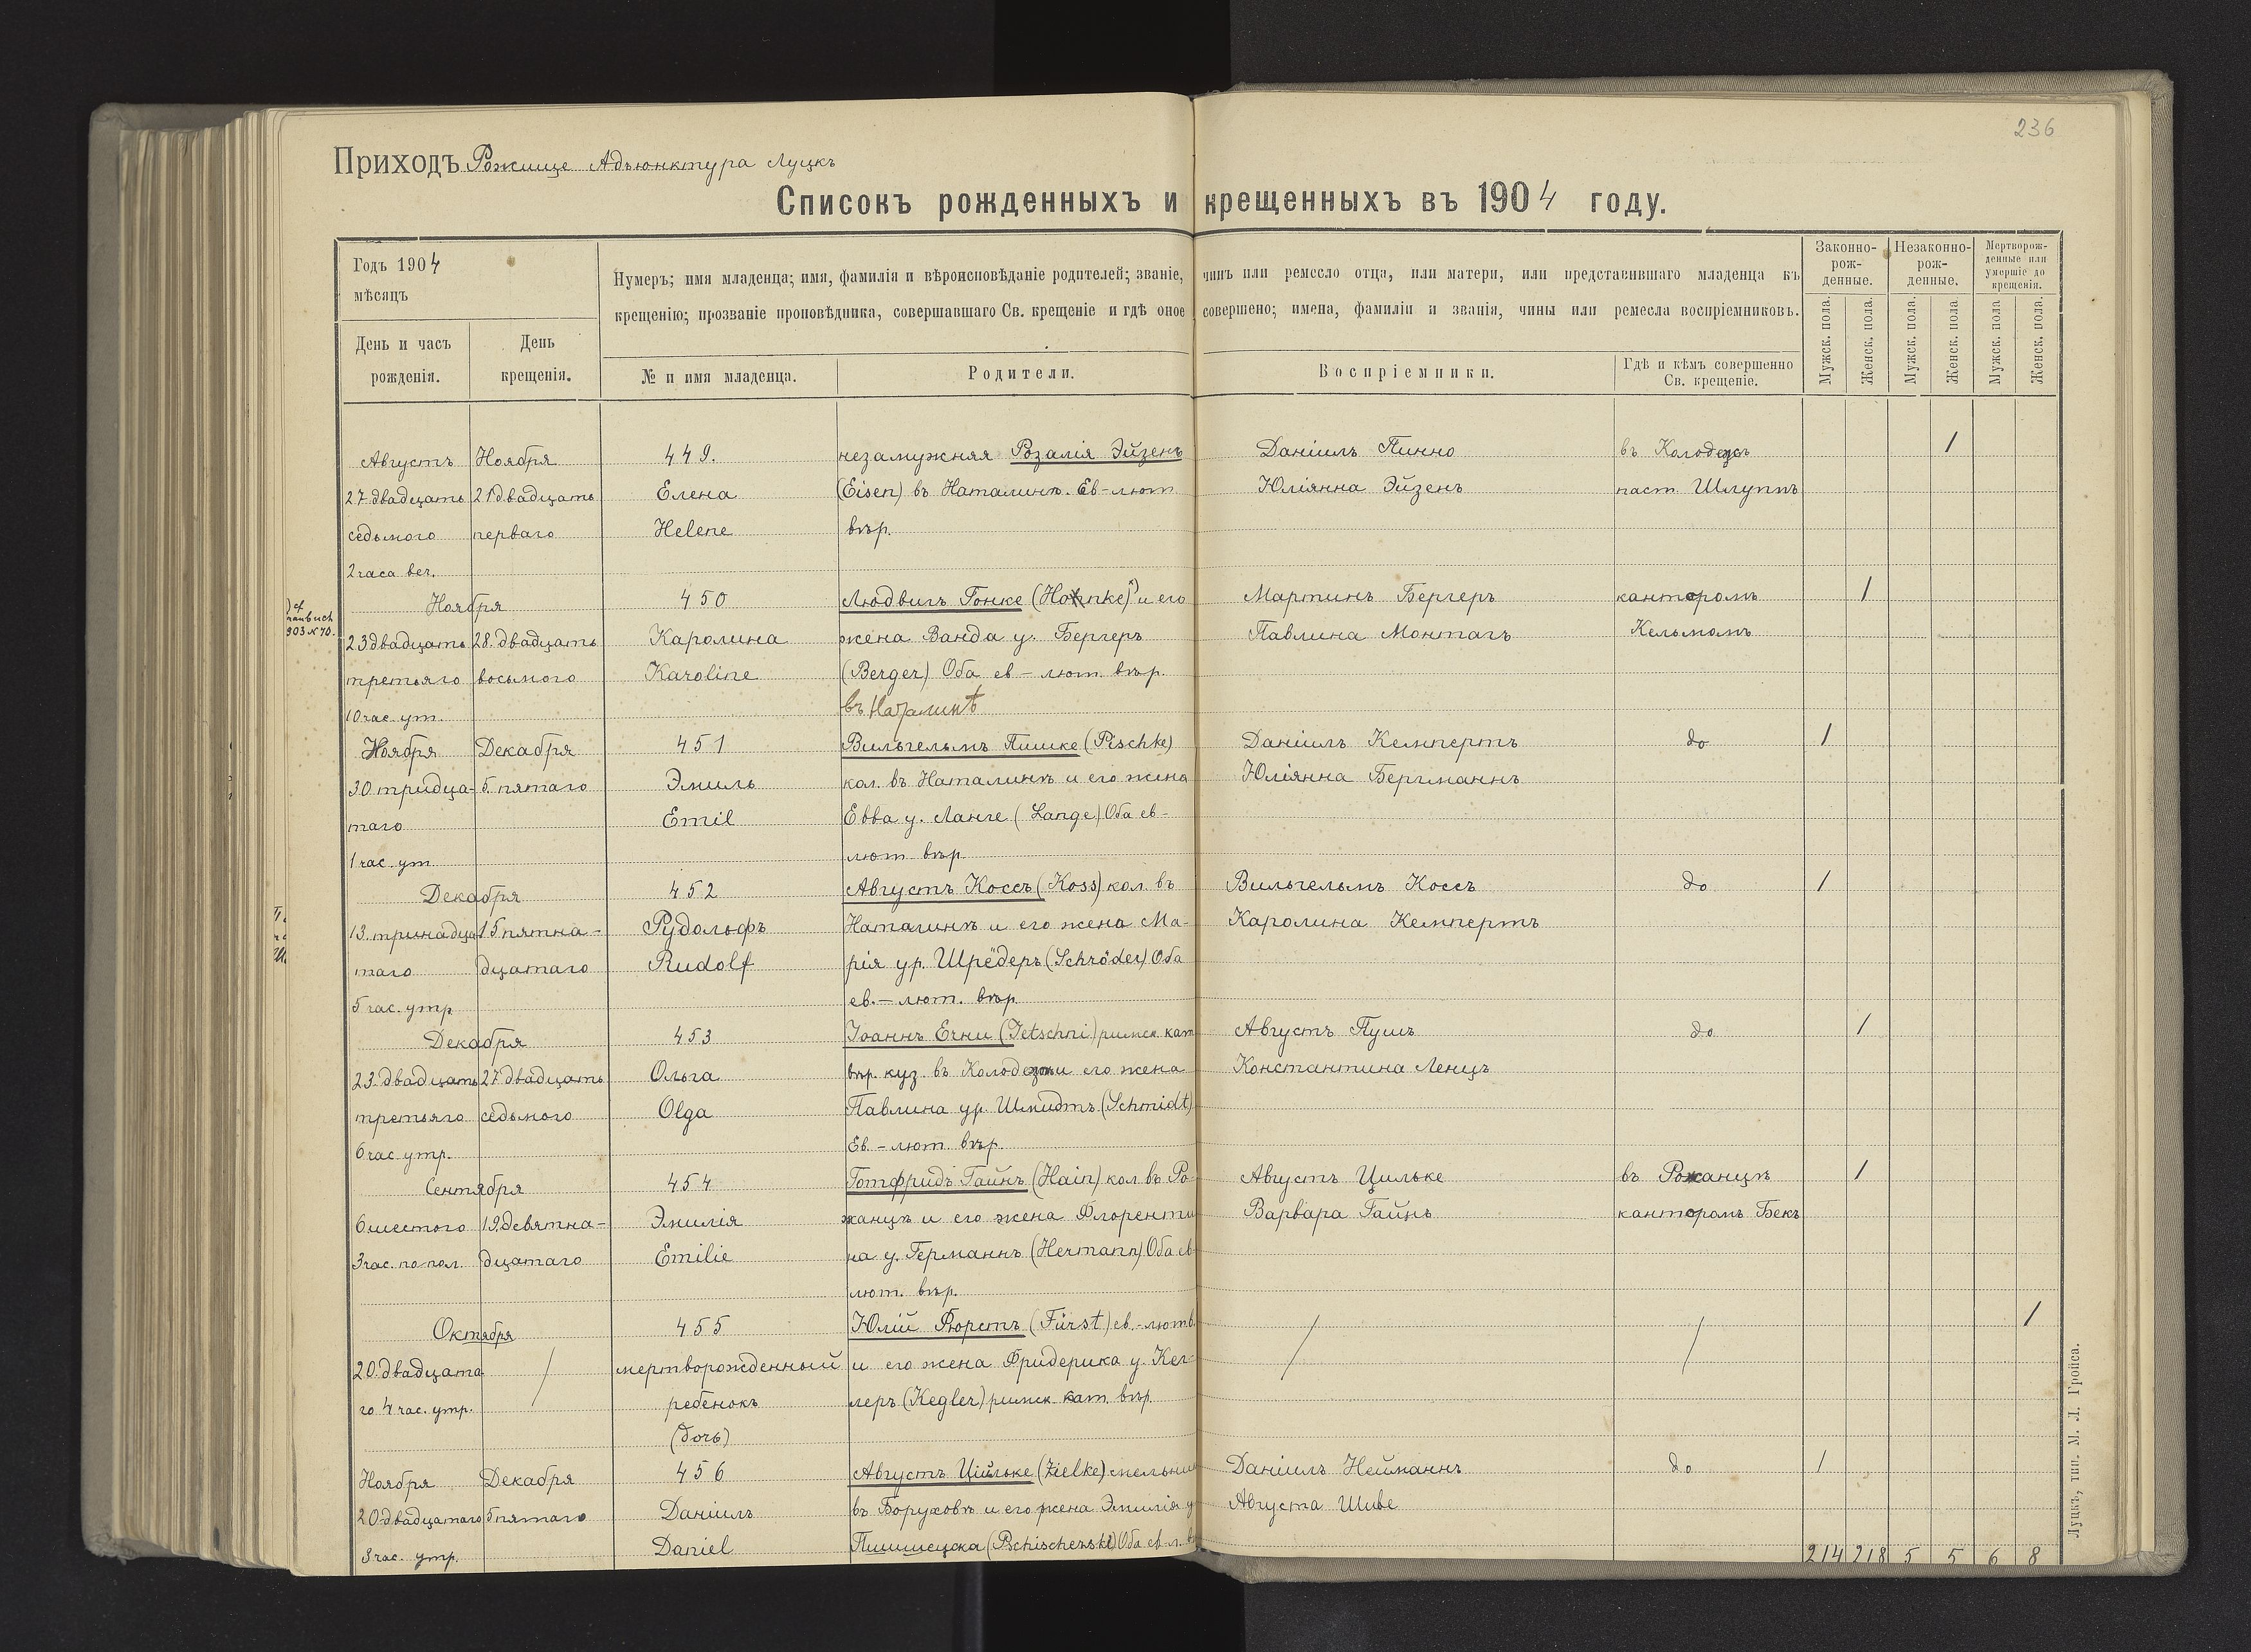 236
Приходъ Рожище Адъюнктура Луцкъ
Списокъ рожденныхъ и крещенныхъ въ 1904 году.
Годъ 1904
мѣсяцъ
День и часъ рожденія.
День крещенія.
Нумеръ; имя младенца; имя, фамилія и вѣроисповѣданіе родителей; званіе, чинъ или ремесло отца, или матери, или представившаго младенца къ
крещенію; прозваніе проповѣдника, совершавшаго Св. крещеніе и гдѣ оное совершено; имена, фамиліи и званія, чины или ремесла воспріемниковъ.
№ и имя младенца.
Родители.
Воспріемники.
Гдѣ и кѣмъ совершенно Св. крещеніе.
Законно-рож-денные.
Незаконно-рож-денные.
Мертворож-денные или умершіе до крещенія.
Мужск. пола.
Женск. пола.
Мужск. пола.
Женск. пола
Мужск. пола
Женск. пола.
Августъ Ноября 449. незамужняя Розалія Эйзенъ Даніилъ Пинно въ Колодезъ 1
27 двадцать 21 двадцать Елена (Eisen) въ Наталинѣ. Ев-лют Юліянна Эйзенъ паст. Шлуппъ
седьмого перваго Helene вѣр.
2 часа веч.
Ноября 450 Людвигъ Гонке (Honke) и его Мартинъ Бергеръ канторомъ 1
903 N 70.
23 двадцать 28. двадцать Каролина жена Ванда у. Бергеръ Павлина Монтагъ Кельмомъ
третьяго восьмого Karoline (Berger) Оба ев-лют. вѣр.
10 час. ут. въ Наталинѣ
Ноября Декабря 451 Вильгельмъ Пишке (Pischke) Даніилъ Кемпертъ до 1
30 тридца- 5. пятаго Эмиль кол. въ Наталинѣ и его жена Юліянна Бергманнъ
таго Emil Евва у. Ланге (Lange) Оба ев-
1 час. ут. лют. вѣр
Декабря 452 Августъ Коссъ (Koss) кол. въ Вильгельмъ Коссъ до 1
13. тринадца 15 пятна- Рудольфъ Наталинѣ и его жена Ма- Каролина Кемпертъ
таго дцатаго Rudolf рія ур. Шрёдеръ (Schröder) Оба
5 час. утр ев.-лют. вѣр.
Декабря 453 Іоаннъ Ечни (Jetschni) римск. кат Августъ Пушъ до 1
23. двадцать 27 двадцать Ольга вѣр. куз. въ и его жена Константина Ленцъ
третьяго седьмого Olga Павлина ур. Шмидтъ (Schmidt)
6 час. утр. Ев.-лют. вѣр.
Сентября 454 Готфридъ Гайнъ (Hain) кол. въ Ро- Августъ Цильке въ Рожанцѣ 1
6 шестого 19. девятна- Эмилія жанцѣ и его жена Флоренти Варвара Гайнъ канторомъ Бекъ
3 час. по пол. дцатаго Emilie на у. Германнъ (Hermann) Оба ев-
лют. вѣр.
Октября 455 Юлій Фюрстъ (Fürst) ев.-лют в. / / 1
20. двадцата / мертворожденный и его жена Фридерика у. Кег-
го 4 час. утр. ребенокъ леръ (Kegler) римск. кат. вѣр.
(дочь)
Ноября Декабря 456 Августъ Цильке (Zielke) мельни Даніилъ Нейманнъ до 1
20 двадцатаго 5 пятаго Даніилъ въ Боруховѣ и его жена Эмилія у Августа Шиве
8 час. утр. Daniel Оба ев-л.
214 218 5 5 6 8
Луцкъ, тип. М. Л. Гройса.